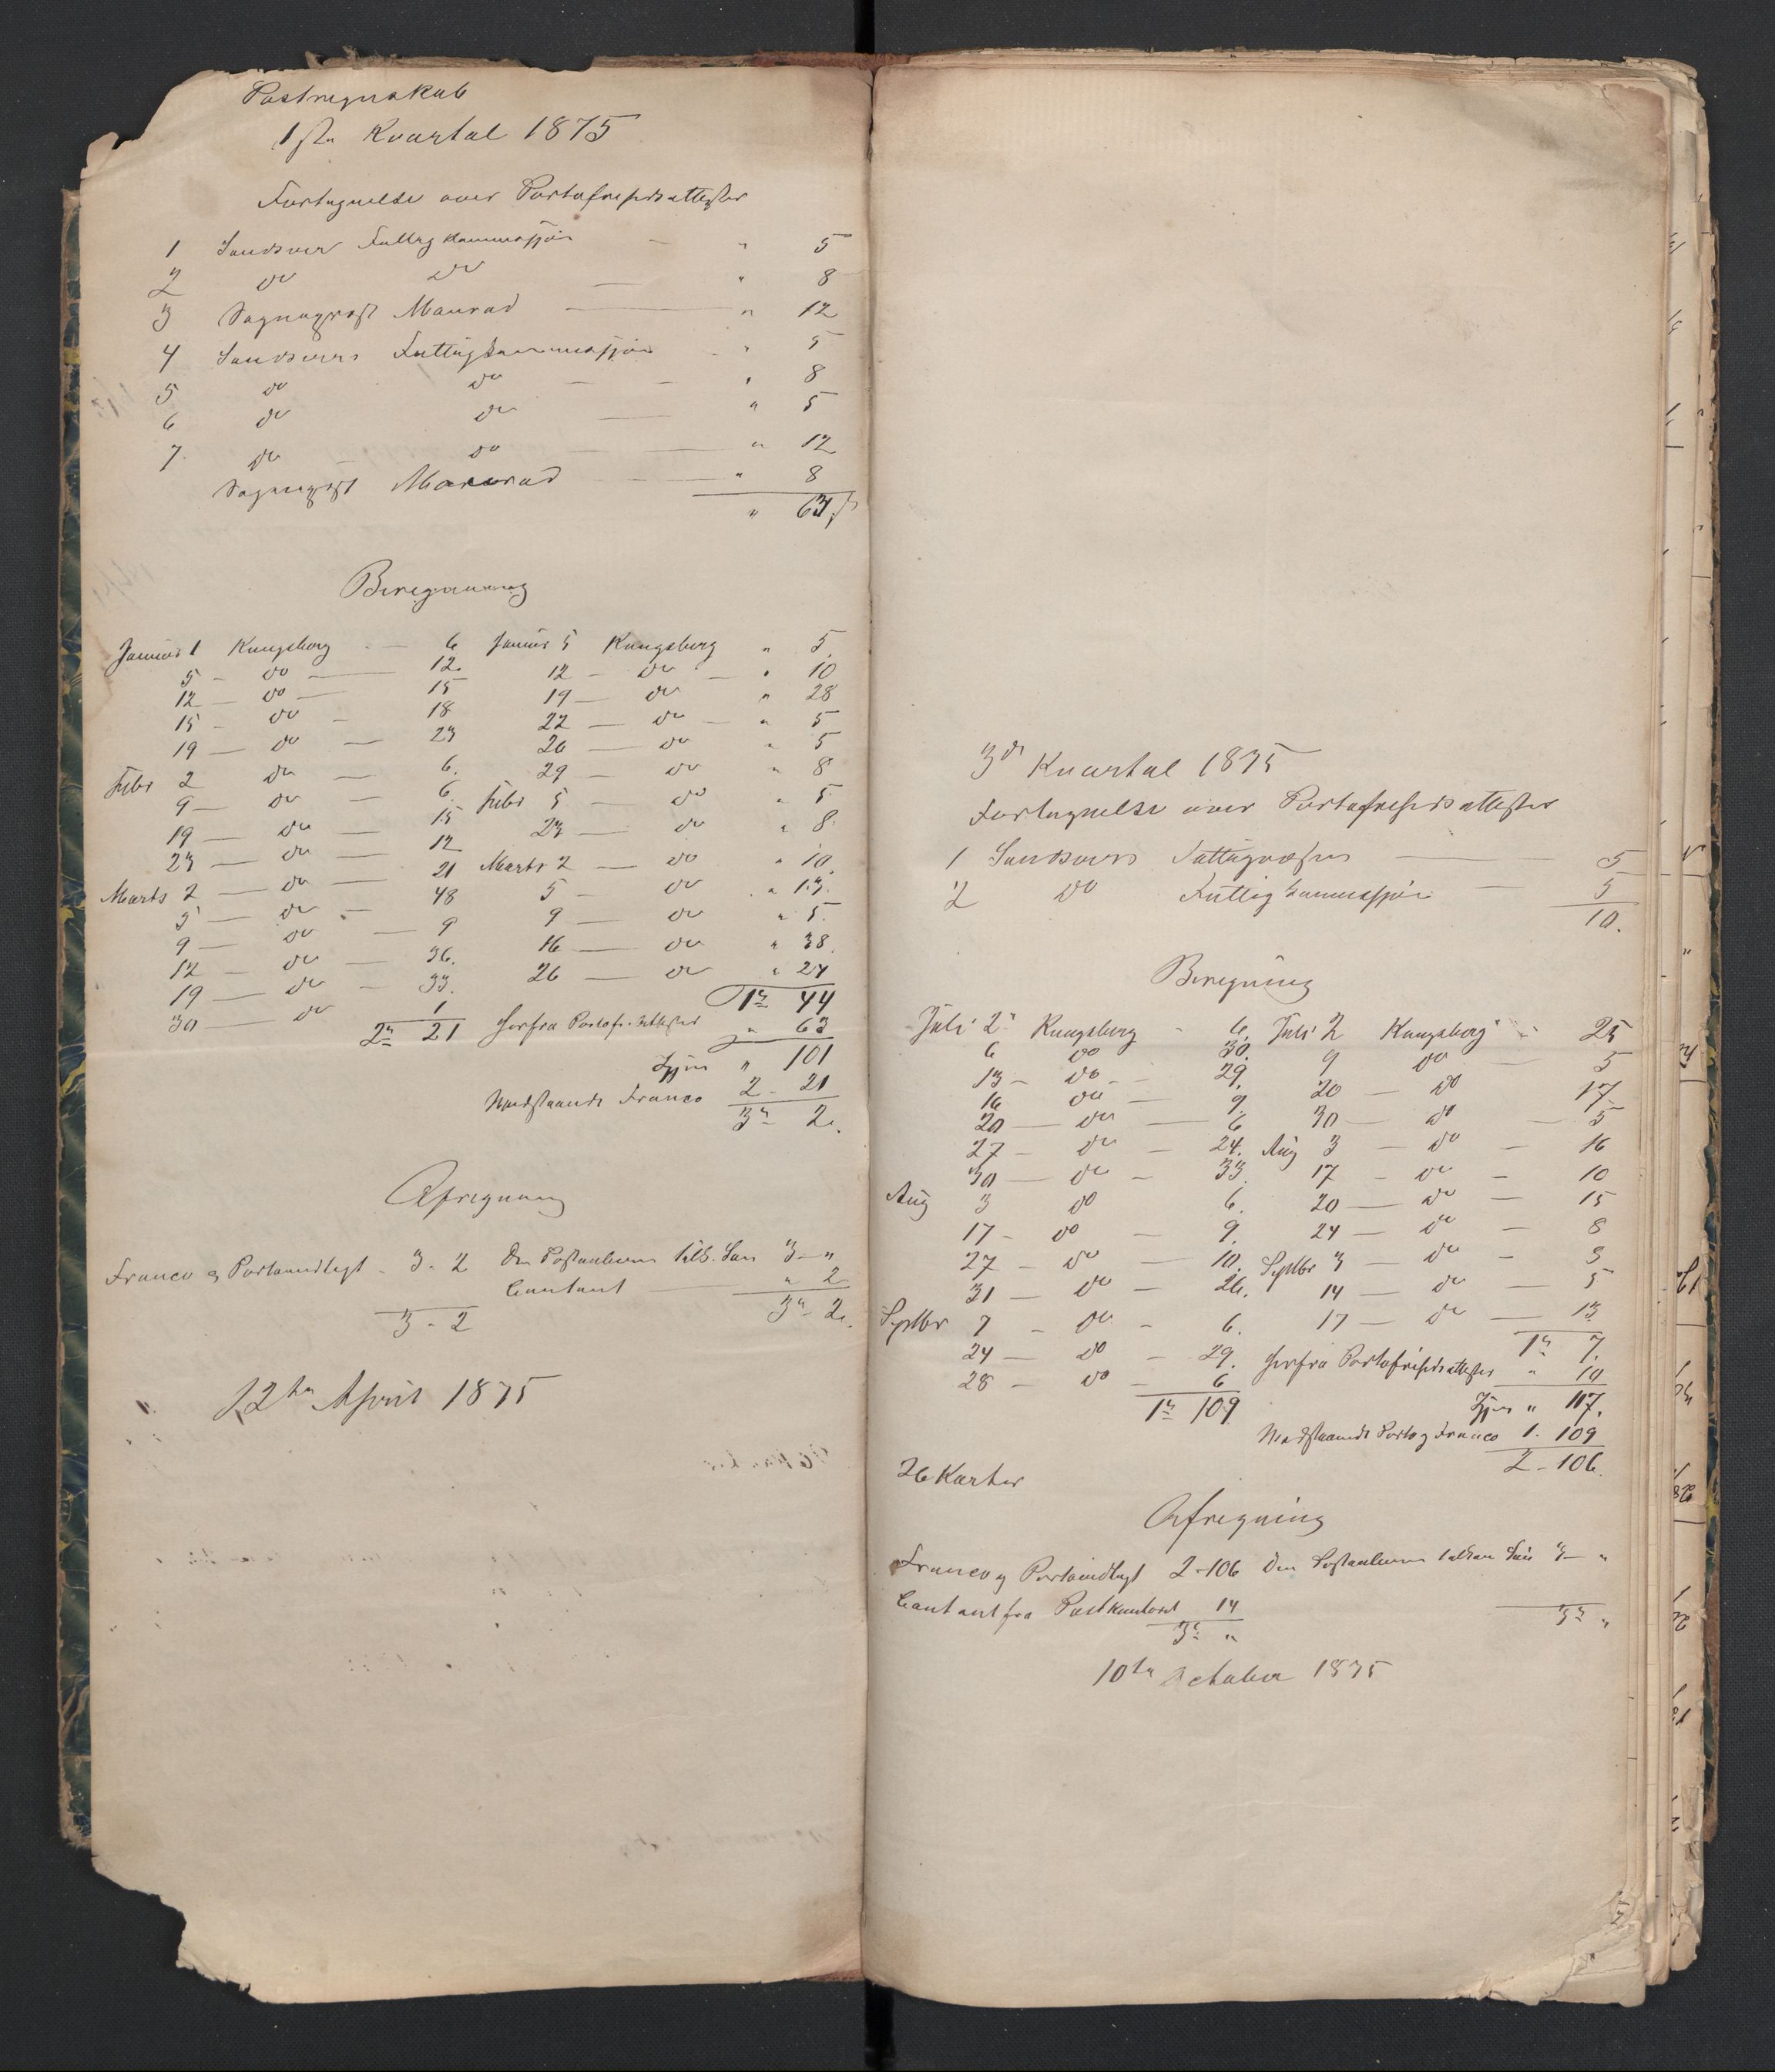 Postregnskab
1ste Kvartal 1875
Fortegnelse over Portofriheds attester
1 Sandsvær Fattig Kommissjon — " 5
2 do do — " 8
3 Sogneprest Monrad — " 12
4 Sandsværs Fattigkommissjon - " 5
5 do do — — " 8
6 do do — " 5
7 do do — " 12
Sogneprest Monrad — " 8
" 63 s
Beregning
Januar 1 Kongsberg - — 6 Januar 5 Kongsberg " 5.
5 - do — 12. 12 - do — " 10
12 — do — 15 19 — do " 28
15 - do - 18 22 — do — " 5
19 — do — 23 26 — do " 5
Febr 2 do — 6. 29 — do " 8
9 — do — 6. Febr 5 — do " 5
19 — do — 15 23 — do " 8.
23 — do — 12 Marts 2 — do " 10.
Marts 2 — do — 21 5 - do " 13.
5 — do — 48 9 — do " 5.
9 — do — 9 16 — do " 38.
12 — do — 36. 26 — do " 24
19 — do — 33. 1 44
30 — do 1 herfra Portofr. Attester " 63
2 21 Igjen " 101
Modstaaende Franco 2 - 21
3 2.
Afregning
Franco og Portoindtægt - 3 - 2 Den Postaabner tilk. Løn 3 — "
Contant — " 2
3 - 2 3 - 2.
12te April 1875
3de Kvartal 1875
Fortegnelse over Portofriheds attester
1 Sandsværs Fattigvæsen — 5
2 do Fattig Kommissjon — 5
10.
Beregning
Juli 2 Kongsberg - 6. Juli 2 Kongsberg " - 25
6 do 30. 9 do — 5
13 - do - - 29. 20 — do 17
16 do — 9. 30 — do — 5
20 — do — 6 Aug 3 — do — 16
27 - do - 24. 17 - do - 10
30 — do - 33. 20 — do — 15
Aug 3 do 6. 24 — do — 8
17 - do 9. Septbr 3 — do — 3
27 — do — 10. 14 — do — 5
31 — do — 26. 17 — do — 13
Septbr 7 - do - 6. 1 7.
24 — do - 29. herfra Portofriheds attester " 10
28 — do — 6 Igjen " 117.
1 109 Modstaaende Porto og Franco 1. 109
2 - 106.
26 Karter
Afregning
Franco og Portoindtægt 2 - 106 Den Postaabner tilk. Løn 3 — "
Contant fra Postkontoret 14
3 " 3 "
10de October 1875